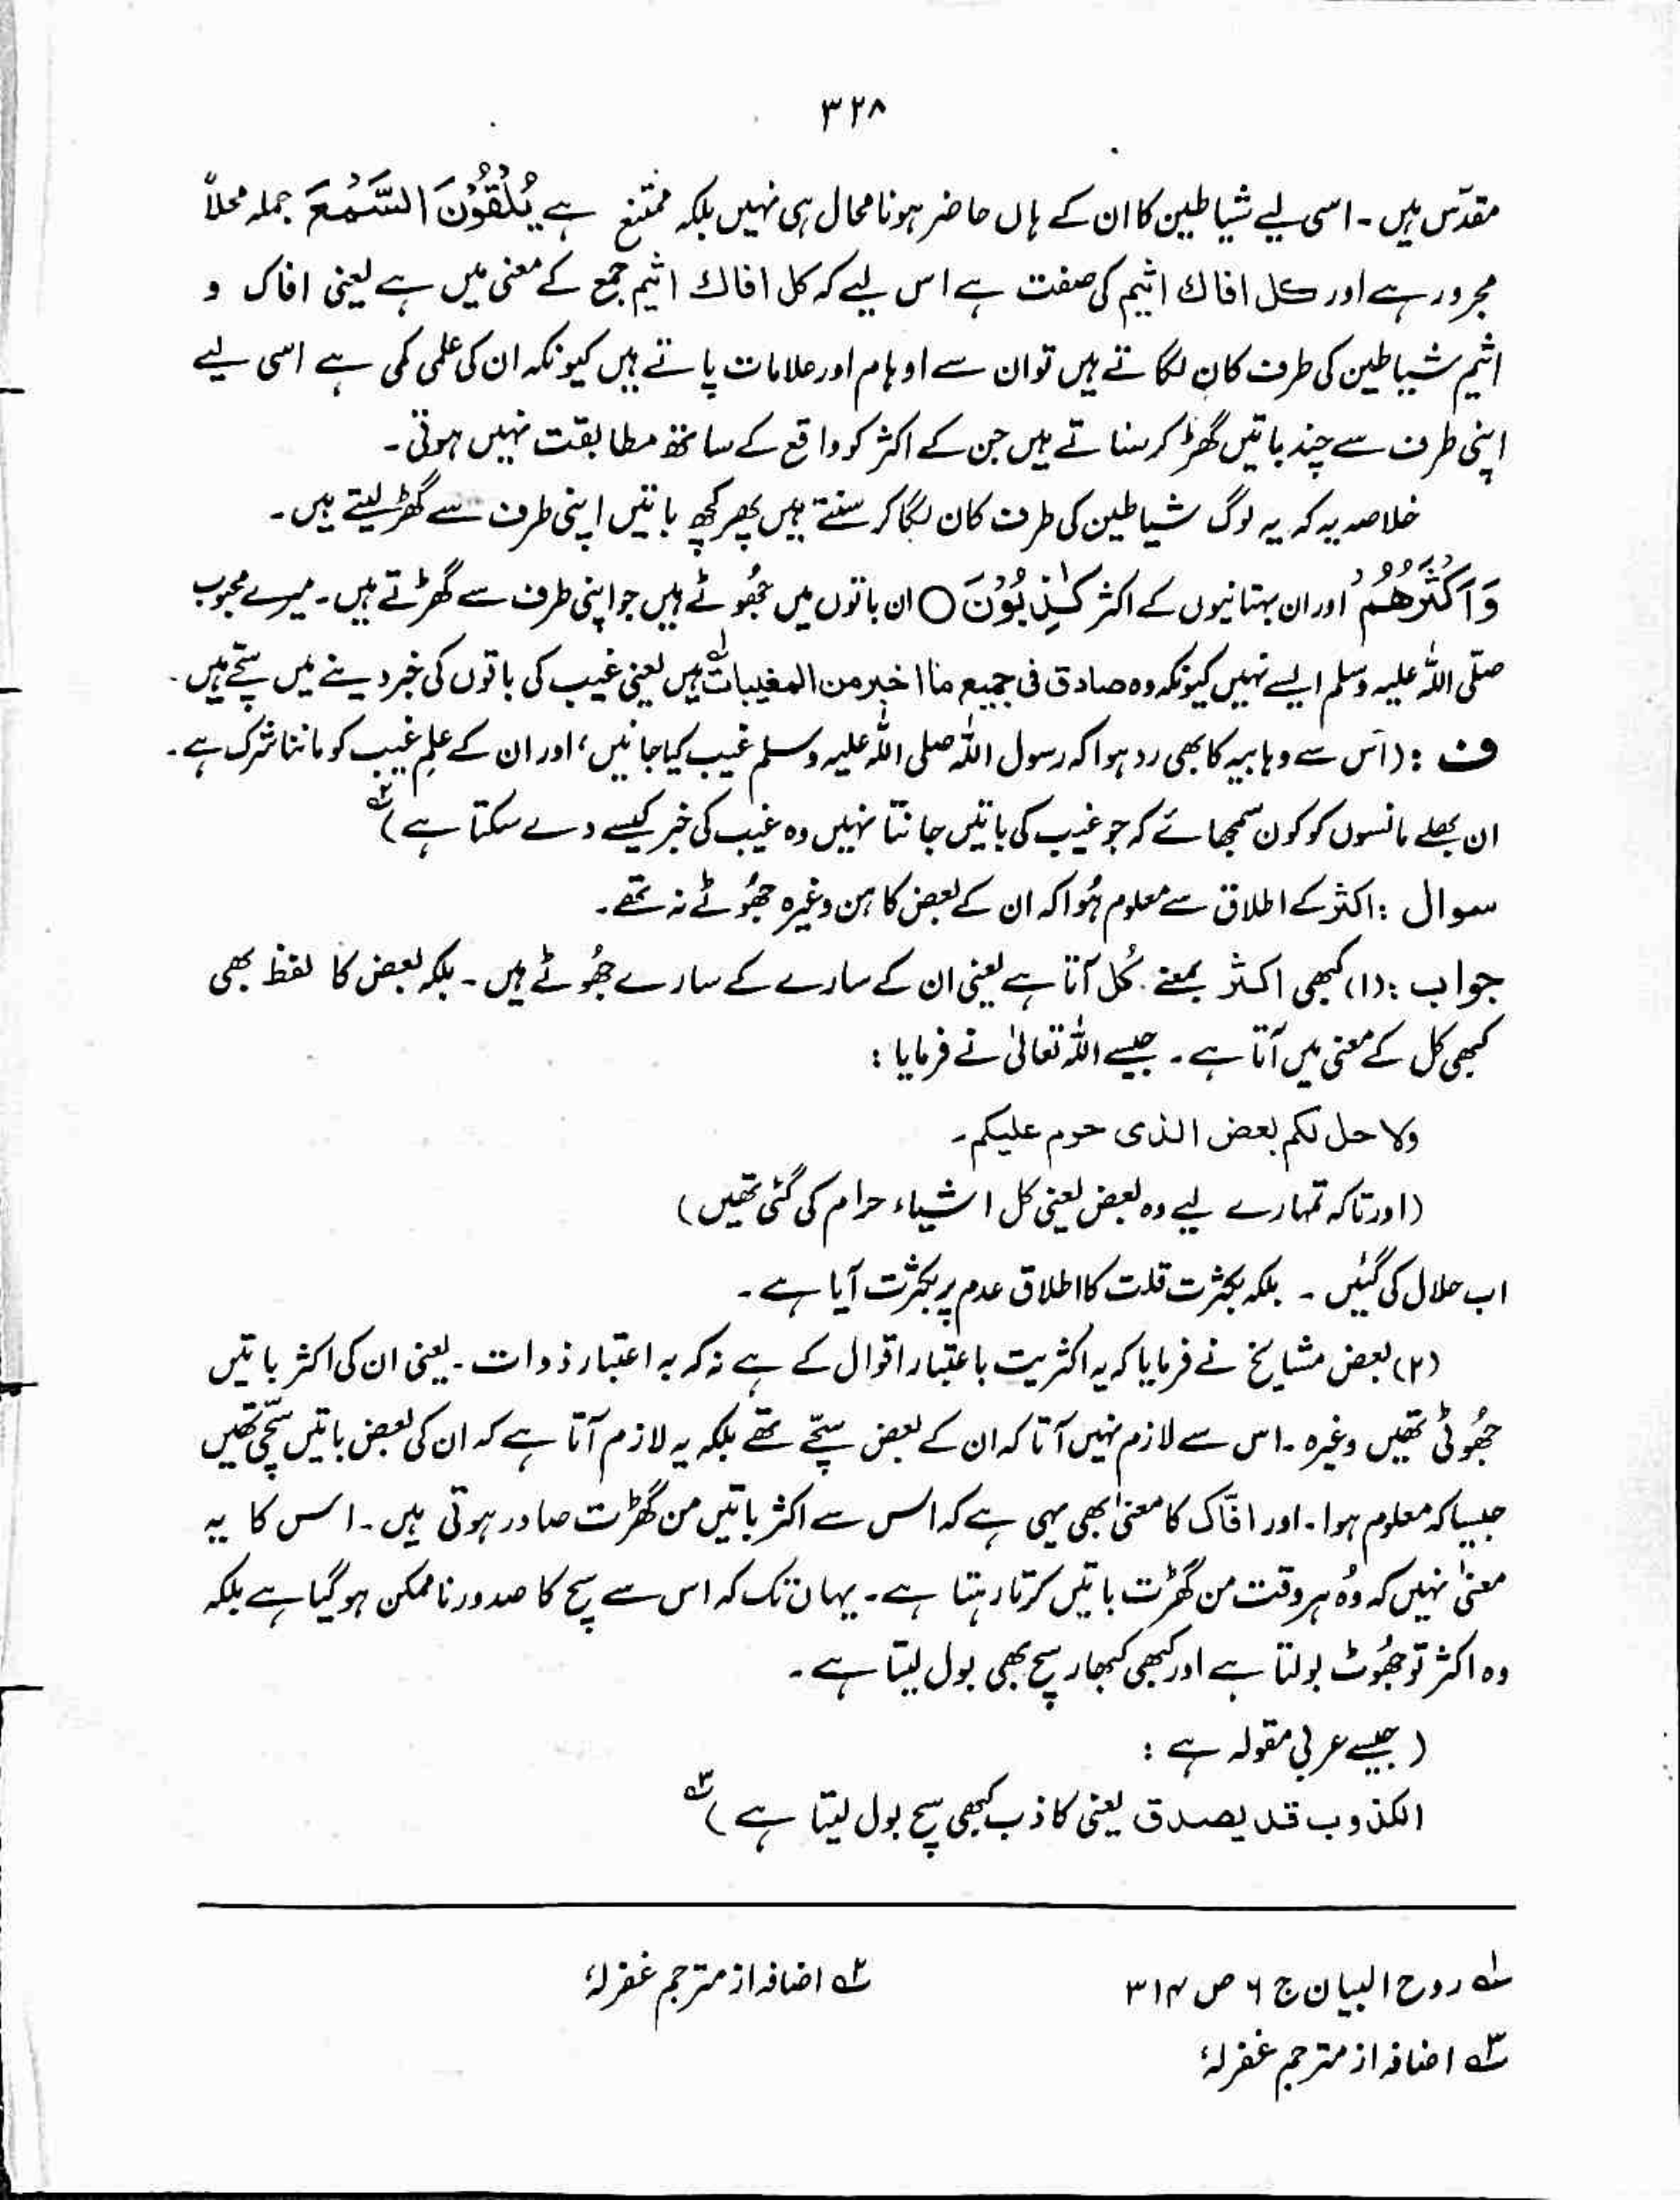 ۳۲۸
مقدّس ہیں۔ اسی لیے شیاطین کا ان کے ہاں حاضر ہونا محال ہی نہیں بلکہ ممتنع ہے یُلْقُوْنَ السَّمْعَ جملہ محلاً
مجرور ہے اور کل افاك اثیم کی صفت ہے اس لیے کہ کل افاك اثیم جمع کے معنی میں ہے یعنی افاک و
اثیم شیاطین کی طرف کان لگاتے ہیں تو ان سے اوہام اور علامات پاتے ہیں کیونکہ ان کی علمی کمی ہے اسی لیے
اپنی طرف سے چند باتیں گھڑ کر سناتے ہیں جن کے اکثر کو واقع کے ساتھ مطابقت نہیں ہوتی۔
خلاصہ یہ کہ یہ لوگ شیاطین کی طرف کان لگا کر سنتے ہیں پھر کچھ باتیں اپنی طرف سے گھڑ لیتے ہیں۔
وَاَكْثَرُهُمْ اور ان بہتانیوں کے اکثر كٰذِبُوْنَ ○ ان باتوں میں جھُوٹے ہیں جو اپنی طرف سے گھڑتے ہیں۔ میرے محبوب
صلّی اللہ علیہ وسلم ایسے نہیں کیونکہ وہ صادق فی جمیع ما اخبر من المغیبات ۱ ہیں یعنی غیب کی باتوں کی خبر دینے میں سچّے ہیں۔
ف : (اس سے وہابیہ کا بھی رد ہوا کہ رسول اللہ صلی اللہ علیہ وسلم غیب کیا جانیں، اور ان کے علمِ غیب کو ماننا شرک ہے۔
ان بھلے مانسوں کو کون سمجھائے کہ جو غیب کی باتیں جانتا نہیں وہ غیب کی خبر کیسے دے سکتا ہے) ۲
سوال : اکثر کے اطلاق سے معلوم ہُوا کہ ان کے بعض کاہن وغیرہ جھُوٹے نہ تھے۔
جواب : (۱) کبھی اکثر بمعنے کُل آتا ہے یعنی ان کے سارے کے سارے جھُوٹے ہیں۔ بلکہ بعض کا لفظ بھی
کبھی کل کے معنی میں آتا ہے۔ جیسے اللہ تعالیٰ نے فرمایا :
ولاحل لکم بعض الذی حرم علیکم۔
(اور تاکہ تمہارے لیے وہ بعض یعنی کل اشیاء حرام کی گئی تھیں)
اب حلال کی گئیں۔ بلکہ بکثرت قلت کا اطلاق عدم پر بکثرت آیا ہے۔
(۲) بعض مشایخ نے فرمایا کہ یہ اکثریت باعتبار اقوال کے ہے نہ کہ بہ اعتبار ذوات۔ یعنی ان کی اکثر باتیں
جھُوٹی تھیں وغیرہ۔ اس سے لازم نہیں آتا کہ ان کے بعض سچّے تھے بلکہ یہ لازم آتا ہے کہ ان کی بعض باتیں سچّی تھیں
جیسا کہ معلوم ہوا۔ اور افّاک کا معنیٰ بھی یہی ہے کہ اس سے اکثر باتیں من گھڑت صادر ہوتی ہیں۔ اس کا یہ
معنیٰ نہیں کہ وُہ ہر وقت من گھڑت باتیں کرتا رہتا ہے۔ یہاں تک کہ اس سے سچ کا صدور ناممکن ہو گیا ہے بلکہ
وہ اکثر تو جھُوٹ بولتا ہے اور کبھی کبھار سچ بھی بول لیتا ہے۔
(جیسے عربی مقولہ ہے :
الکذوب قد یصدق یعنی کاذب کبھی سچ بول لیتا ہے) ۳
۱ روح البیان ج ۶ ص ۳۱۴
۲ اضافہ از مترجم غفرلہٗ
۳ اضافہ از مترجم غفرلہٗ